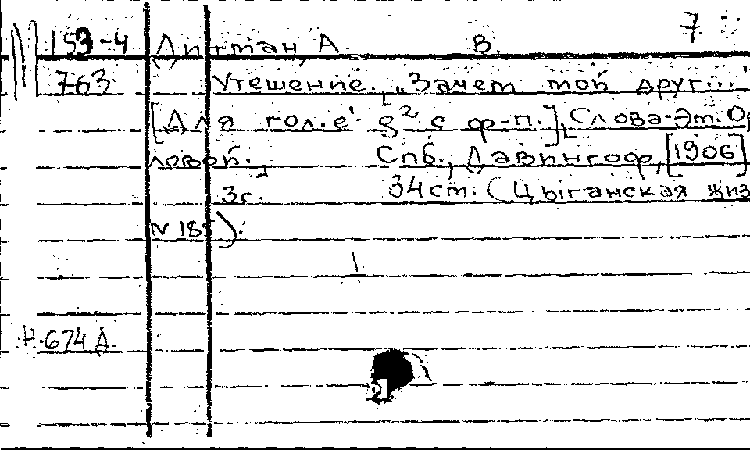 7
М 153-4 Дитман, А В.
763 Утешение. „Зачем мой друг..."
[Для гол. e' g² с ф-п.], Слова Эт. Ор
ловой. Спб., Давингоф, [1906]
3с. 34 ст. (Цыганская жиз
N 185).
Н-674 Д.